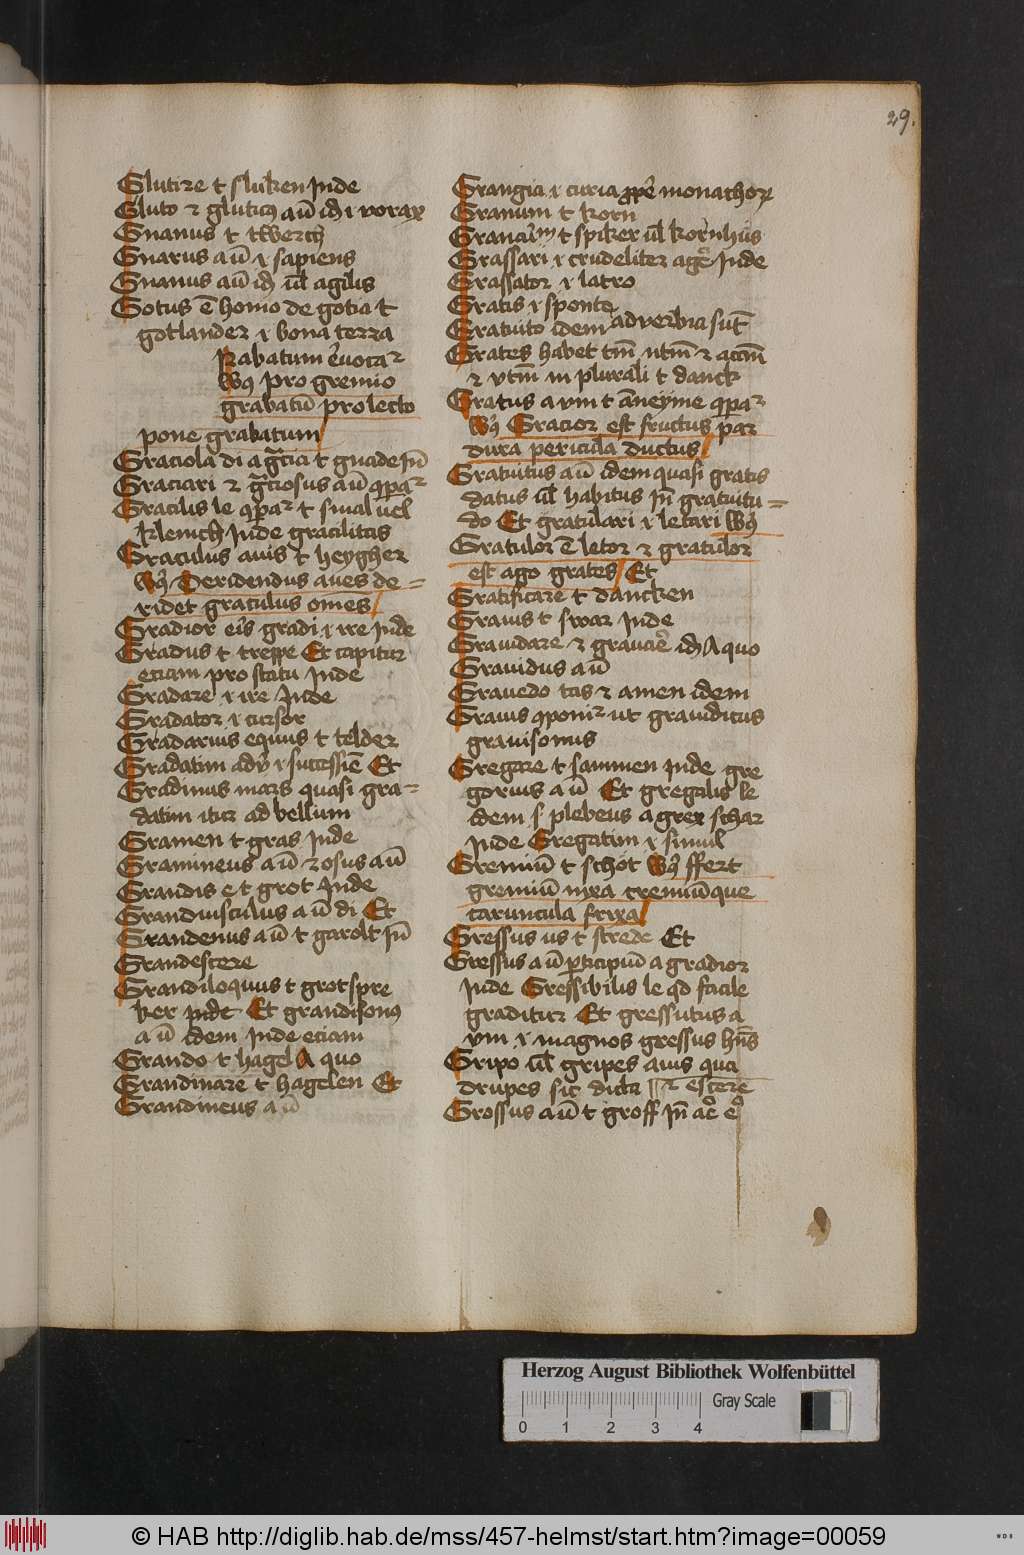 29.
Glutire t sluken Inde
Gluto et glutitus aū id ⁊ vorax
Gnanus t twerch
Gnarus aū ⁊ sapiens
Gnanus aū id ul agilis
Gotus ē homo de gotia t
gotlander ⁊ bona terra
Krabatum ē vocar
ws pro gremio
grabatū pro lecto
pone grabatum
Graciola di a gcia t gnade In
Graciari et gciosus aū opar
Gracilis le opar t smal vel
klenich Inde gracilitas
Graculus auis t heygher
ws Deridendus aues de=
ridet graculus omēs
Gradior eris gradi ⁊ ire Inde
Gradus t treppe Et capitur
eciam pro statu Inde
Gradare ⁊ ire Inde
Gradator ⁊ cursor
Gradarius equus t telder
Gradatim adv ⁊ successiē Et
Gradiuus mars quasi gra=
datim itur ad bellum
Gramen t gras Inde
Gramineus aū et osus aū
Grandis e t grot Inde
Grandiusculus aū di Et
Grandenus aū t garolt In
Grandescere
Grandiloquus t grotspre
ker Inde Et grandisonus
a ū idem Inde eciam
Grando t hagel A quo
Grandinare t hagelen Et
Grandineus aū
Grangia ⁊ curia ppe monachor
Granum t korn
Granariū t spiker ul kornhus
Grassari ⁊ crudeliter ager Inde
Grassator ⁊ latro
Gratis ⁊ sponte
Gratuito idem aduerbia sūt
Grates habet tm ntm et accm
et vtm in plurali t danck
Gratus a um t āneyme opar
ws Gracior est fructus par
dura pericula ductus
Gratuitus aū idem quasi gratis
datus ul habitus In gratuitu=
do Et gratulari ⁊ letari ws
Gratulor ē letor et gratulor
est ago grates Et
Gratificare t dancken
Grauis t swar Inde
Grauidare et grauare id A quo
Grauidus aū
Grauedo tas et amen idem
Grauis oponir ut grauiditus
grauisonus
Gregare t sammen Inde gre
gorius aū Et gregalis le
idem s plebeus a grex schar
Inde Gregatim ⁊ simul
Gremiū t schot ws ffert
gremiū nixa cremiūque
caruncula frixa
Gressus us t strede Et
Gressus aū pticipiū a gradior
Inde Gressibilis le qd facile
graditur Et gressutus a
um ⁊ magnos gressus hns
Gripo ul gripes auis qua
drupes sic dicta ⁊ escere
Grossus aū t groff In ac es
Herzog August Bibliothek Wolfenbüttel
Gray Scale
0 1 2 3 4
© HAB http://diglib.hab.de/mss/457-helmst/start.htm?image=00059